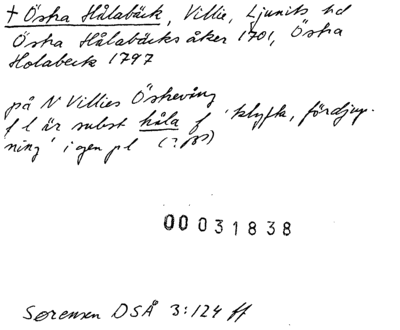 † Östra Hålabäck, Villie, Ljunits hd
Östra Hålabäcks åker 1701, Östra
Holabeck 1797
på N Villies Östervång
f l är subst håla f 'klyfta, fördjup-
ning' i gen pl
00031838
Sørensen DSÅ 3:124 ff